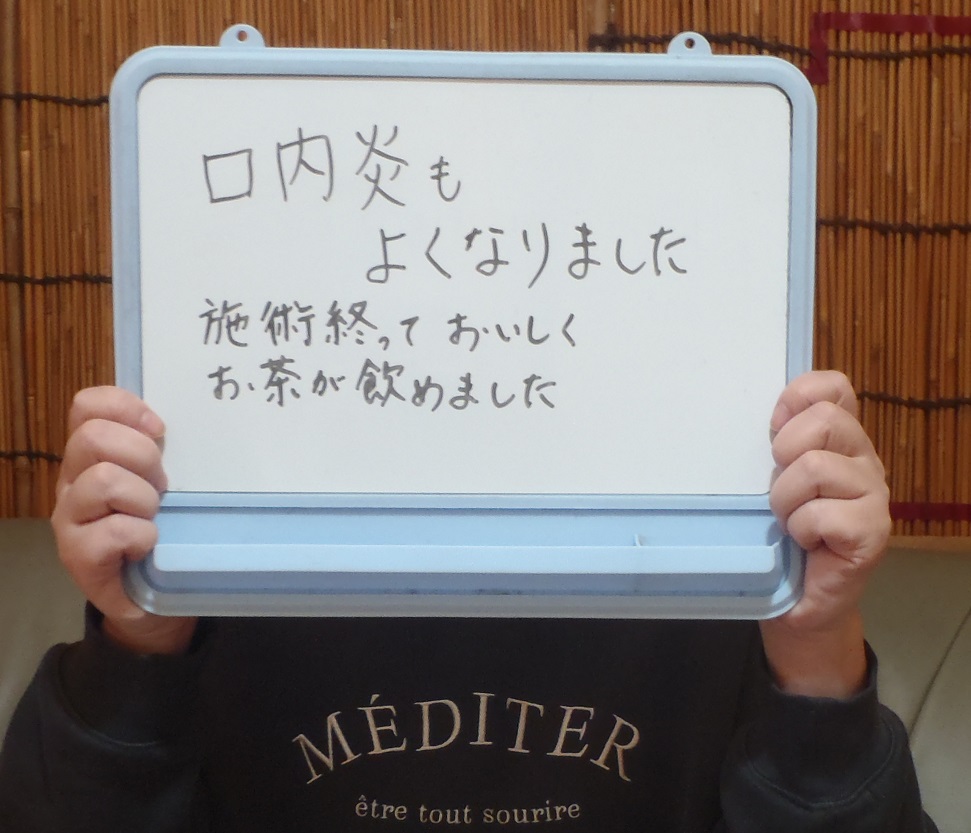 口内炎も
よくなりました
施術終って おいしく
お茶が飲めました
MÉDITER
être tout sourire